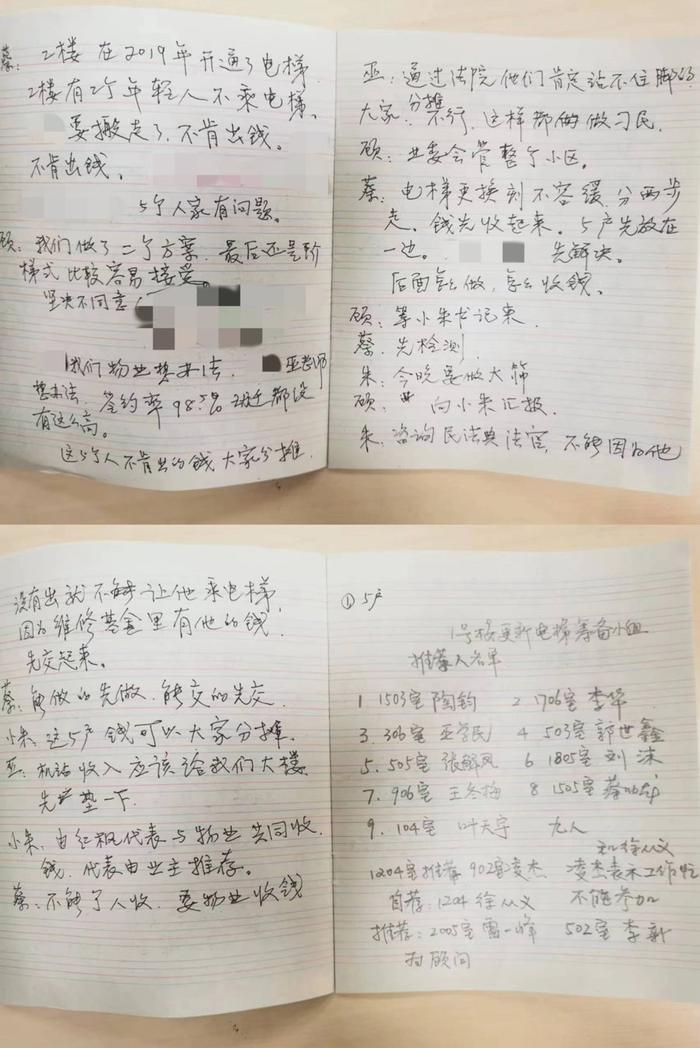 蔡: 2楼 在2019年 开通了电梯
2楼有2个年轻人不乘电梯、
要搬走了, 不肯出钱。
不肯出钱。
5个人家有问题。
顾: 我们做了二个方案, 最后还是阶
梯式比较容易接受。
坚决不同意
我们物业想办法, 巫老师
想办法, 签约率98.5% 动迁都没
有这么高。
这5个人不肯出的钱, 大家分摊.
巫: 通过法院他们肯定站不住脚的
大家分摊 不行, 这样都做刁民,
顾: 业委会管整个小区。
蔡: 电梯更换刻不容缓, 分两步
走, 钱先收起来。5户先放在
一边。 先解决。
后面怎么做, 怎么收钱。
顾: 等小朱书记来,
蔡: 先检测,
朱: 今晚要做大筛
顾: 向小朱汇报,
朱: 咨询民法典法官, 不能因为他
没有出就不能让他乘电梯,
因为维修基金里有他的钱,
先交起来。
蔡: 能做的先做, 能交的先交
小朱: 这5户钱可以大家分摊,
巫: 机站收入应该给我们大楼
先垫一下.
小朱: 由红枫代表与物业共同收
钱, 代表由业主推荐。
蔡: 不能个人收, 要物业收钱
① 5户
1号楼更新电梯筹备小组
推荐人名单
1 1503室 陶钧 2 1706室 李华
3. 306室 巫学民 4 503室 郭世鑫
5. 505室 张解凤 6 1805室 刘沫
7. 906室 王冬梅 8 1505室 蔡
9. 104室 叶天宇 九人
和徐从文
1204室推荐 902室凌杰 凌杰表示工作忙
自荐: 1204 徐从文 不能参加
推荐: 2005室 雷一峰 502室 李新
为顾问